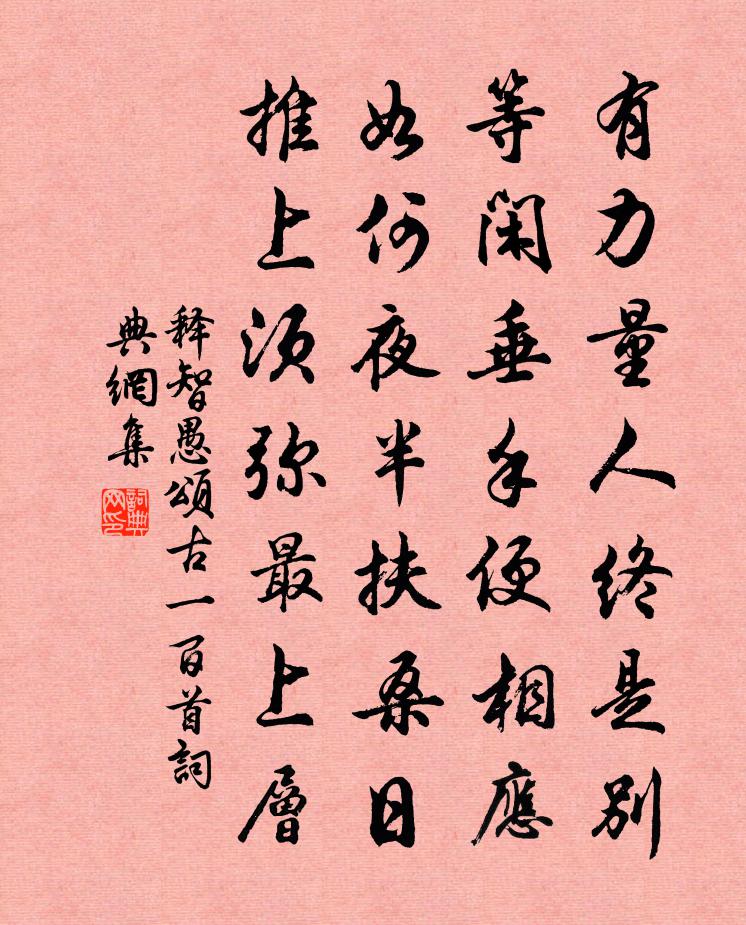 有力量人終是別
等閑垂手便相應
如何夜半扶桑日
推上須弥最上層
释智愚頌古一百首詞
典網集
詞典网印